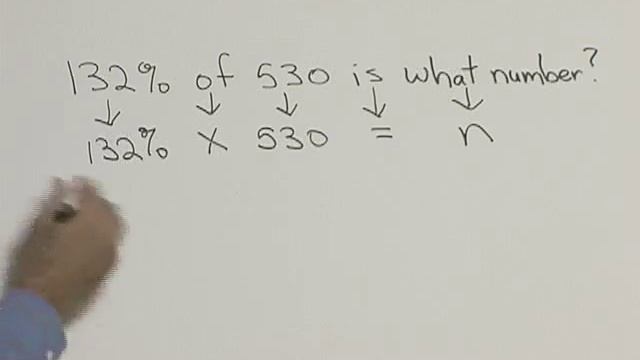 132% of 530 is what number?
↓ ↓ ↓ ↓ ↓
132% × 530 = n